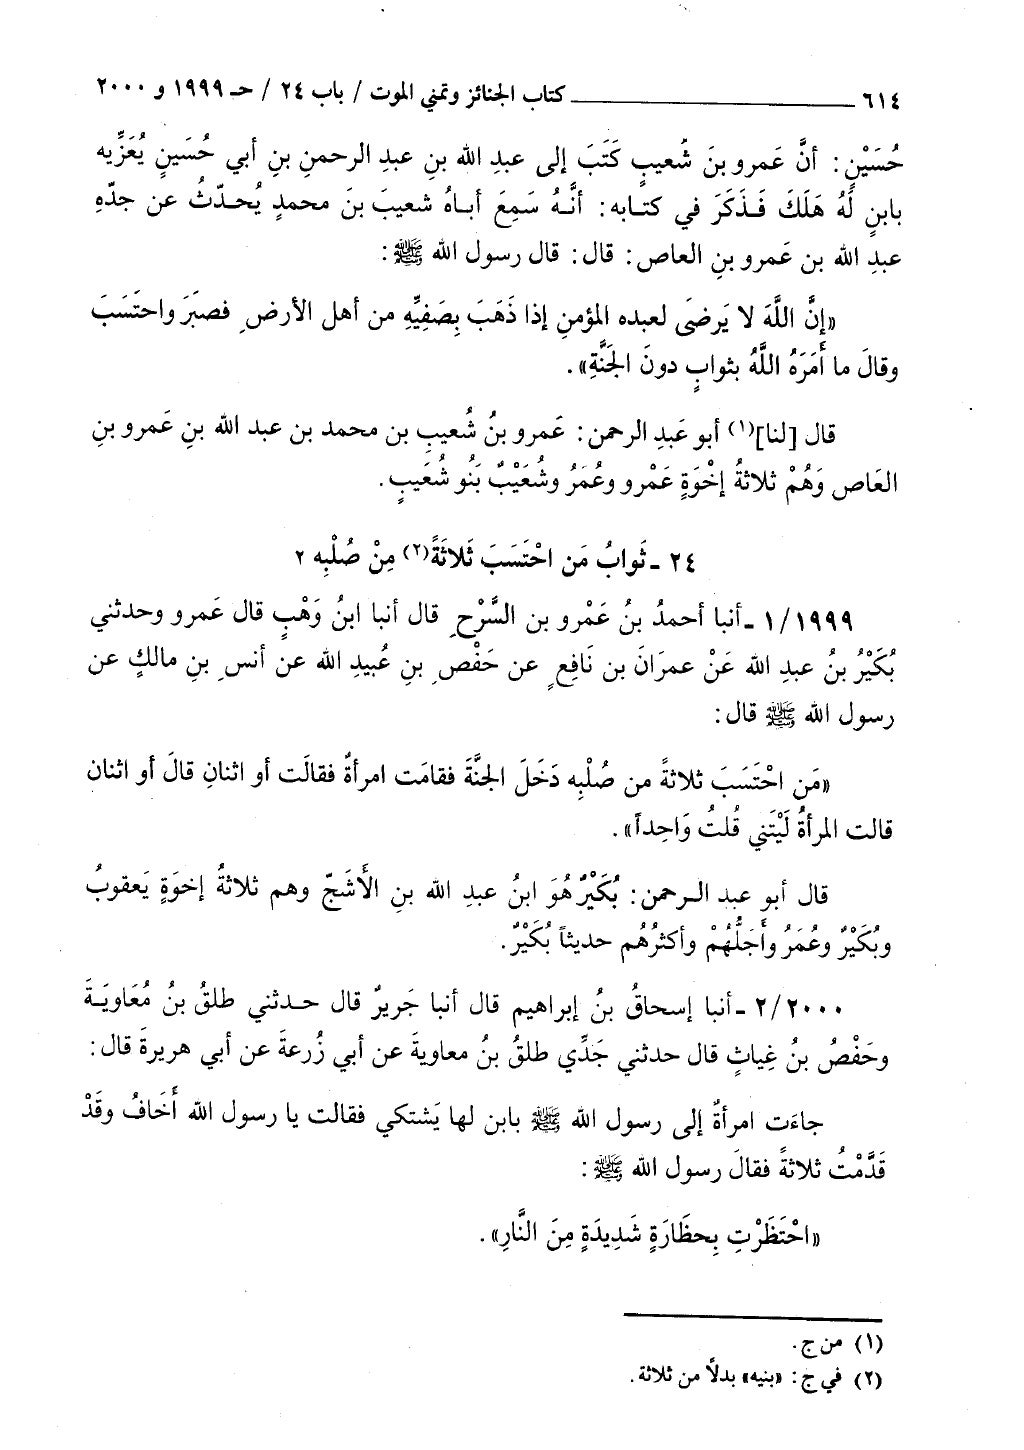 ٦١٤ ــــــــــــــــــ كتاب الجنائز وتمني الموت / باب ٢٤ / حـ ١٩٩٩ و ٢٠٠٠
حُسَيْنٍ: أنَّ عَمرو بنَ شُعيبٍ كَتَبَ إلى عبدِ الله بنِ عبدِ الرحمنِ بنِ أبي حُسَينٍ يُعَزِّيه
بابنٍ لَهُ هَلَكَ فَذَكَرَ في كتابه: أنَّهُ سَمِعَ أباهُ شعيبَ بنَ محمدٍ يُحدّثُ عن جدّهِ
عبدِ الله بن عَمرو بنِ العاص: قال: قال رسول الله ﷺ:
«إنَّ اللَّهَ لا يَرضَى لعبده المؤمنِ إذا ذَهَبَ بِصَفِيِّهِ من أهل الأرضِ فصبَرَ واحتَسَبَ
وقالَ ما أَمَرَهُ اللَّهُ بثوابٍ دونَ الجَنَّةِ».
قال [لنا](١) أبو عَبدِ الرحمن: عَمرو بنُ شُعيبِ بن محمد بن عبد الله بنِ عَمرو بنِ
العَاص وَهُمْ ثلاثةُ إخْوَةٍ عَمْرو وعُمَرُ وشُعَيْبٌ بَنُو شُعَيبٍ.
٢٤ ـ ثَوابُ مَن احْتَسَبَ ثَلاثَةً(٢) مِنْ صُلْبِه ٢
١/١٩٩٩ ـ أنبا أحمدُ بنُ عَمْرو بن السَّرْحِ قال أنبا ابنُ وَهْبٍ قال عَمرو وحدثني
بُكَيْرُ بنُ عبدِ الله عَنْ عمرَانَ بن نَافِعٍ عن حَفْصِ بنِ عُبيدِ الله عن أنسِ بنِ مالكٍ عن
رسول الله ﷺ قال:
«مَن احْتَسَبَ ثلاثةً من صُلْبِه دَخَلَ الجنَّةَ فقامَت امرأةٌ فقالَت أو اثنانِ قالَ أو اثنان
قالت المرأةُ لَيْتَني قُلتُ وَاحِداً».
قال أبو عبد الرحمن: بُكَيْرٌ هُوَ ابنُ عبدِ الله بنِ الأَشَجّ وهم ثلاثةُ إخوَةٍ يَعقوبُ
وبُكَيْرٌ وعُمَرُ وأَجَلُّهُمْ وأكثرُهُم حديثاً بُكَيْرٌ.
٢/٢٠٠٠ ـ أنبا إسحاقُ بنُ إبراهيم قال أنبا جَريرٌ قال حدثني طلقُ بنُ مُعَاويَةَ
وحَفْصُ بنُ غِياثٍ قال حدثني جَدِّي طلقُ بنُ معاويةَ عن أبي زُرعةَ عن أبي هريرةَ قال:
جاءَت امرأةٌ إلى رسول الله ﷺ بابن لها يَشتكي فقالت يا رسول الله أَخَافُ وقَدْ
قَدَّمْتُ ثلاثةً فقالَ رسول الله ﷺ:
«احْتَظَرْتِ بِحظَارَةٍ شَدِيدَةٍ مِنَ النَّارِ».
(١) من ج.
(٢) في ج: «بنيه» بدلًا من ثلاثة.